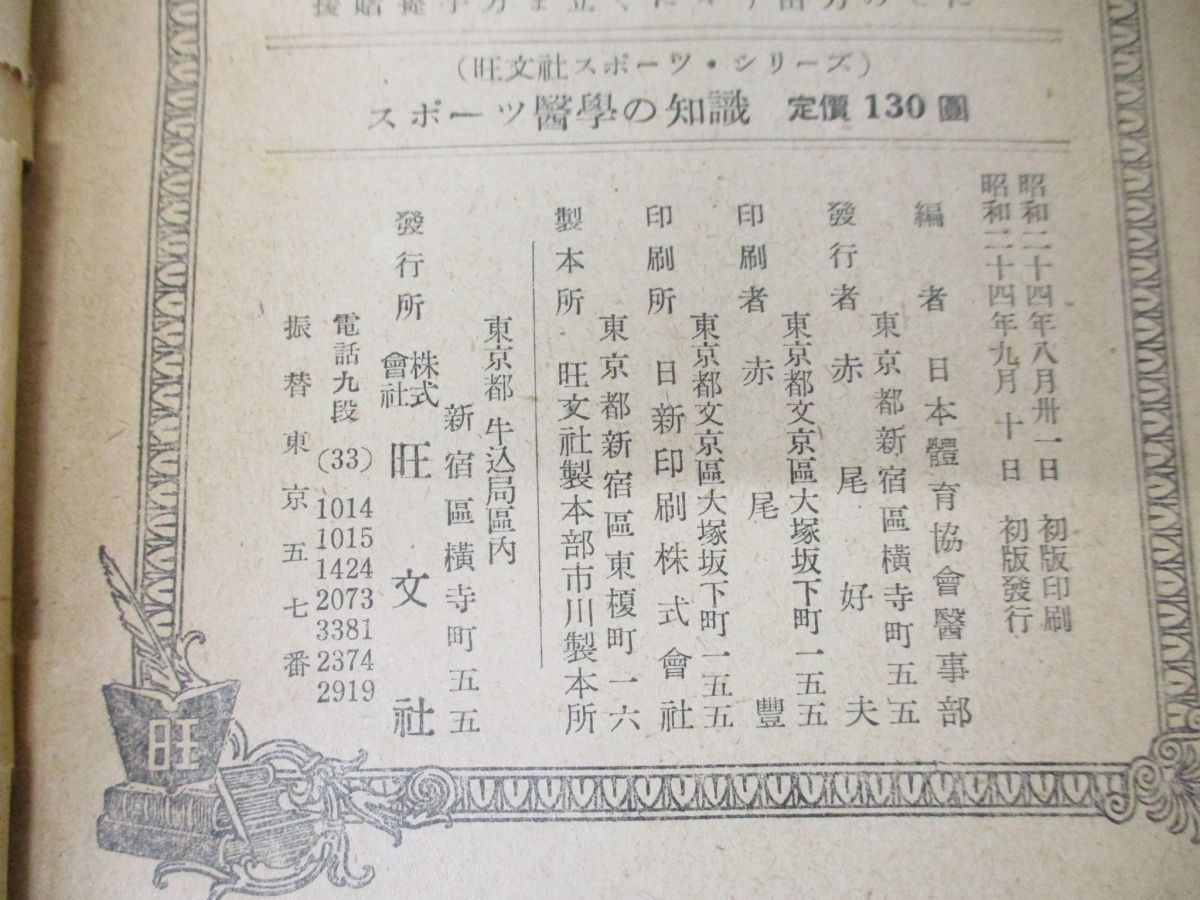 (旺文社スポーツ・シリーズ)
スポーツ醫學の知識 定價 130 圓
昭和二十四年八月卅一日 初版印刷
昭和二十四年九月十日 初版發行
編者 日本體育協會醫事部
東京都新宿區横寺町五五
發行者 赤尾好夫
東京都文京區大塚坂下町一五五
印刷者 赤尾豐
東京都文京區大塚坂下町一五五
印刷所 日新印刷株式會社
東京都新宿區東榎町一六
製本所 旺文社製本部市川製本所
東京都牛込局區内
新宿區横寺町五五
發行所 株式會社 旺文社
電話九段(33) 1014
1015
1424
2073
3381
2374
2919
振替東京五七番
旺